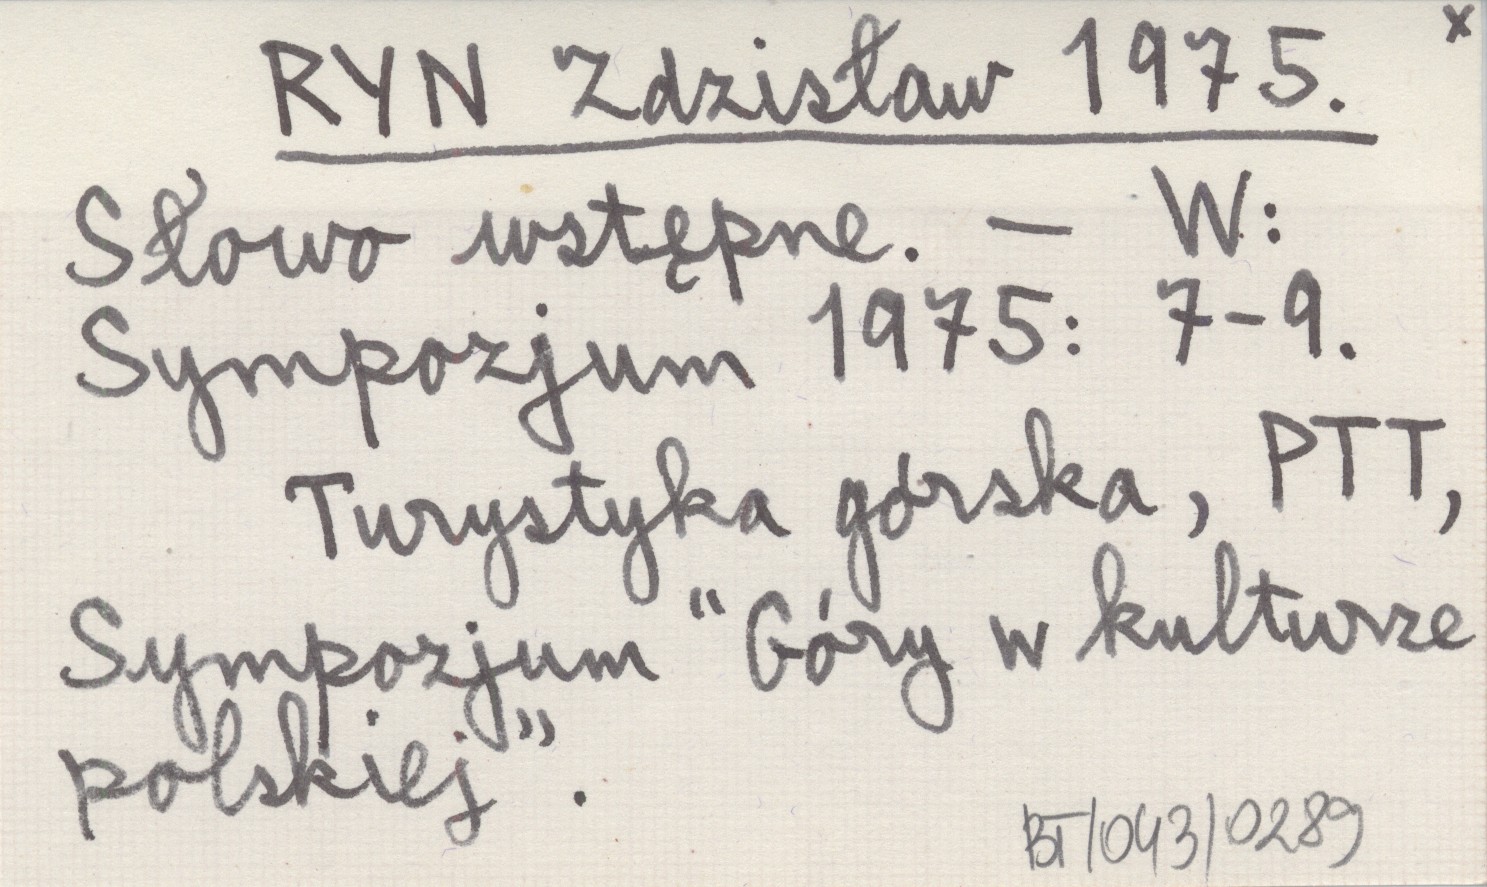 x
RYN Zdzisław 1975.
Słowo wstępne. — W:
Sympozjum 1975: 7-9.
Turystyka górska, PTT,
Sympozjum "Góry w kulturze
polskiej".
BT/043/0289